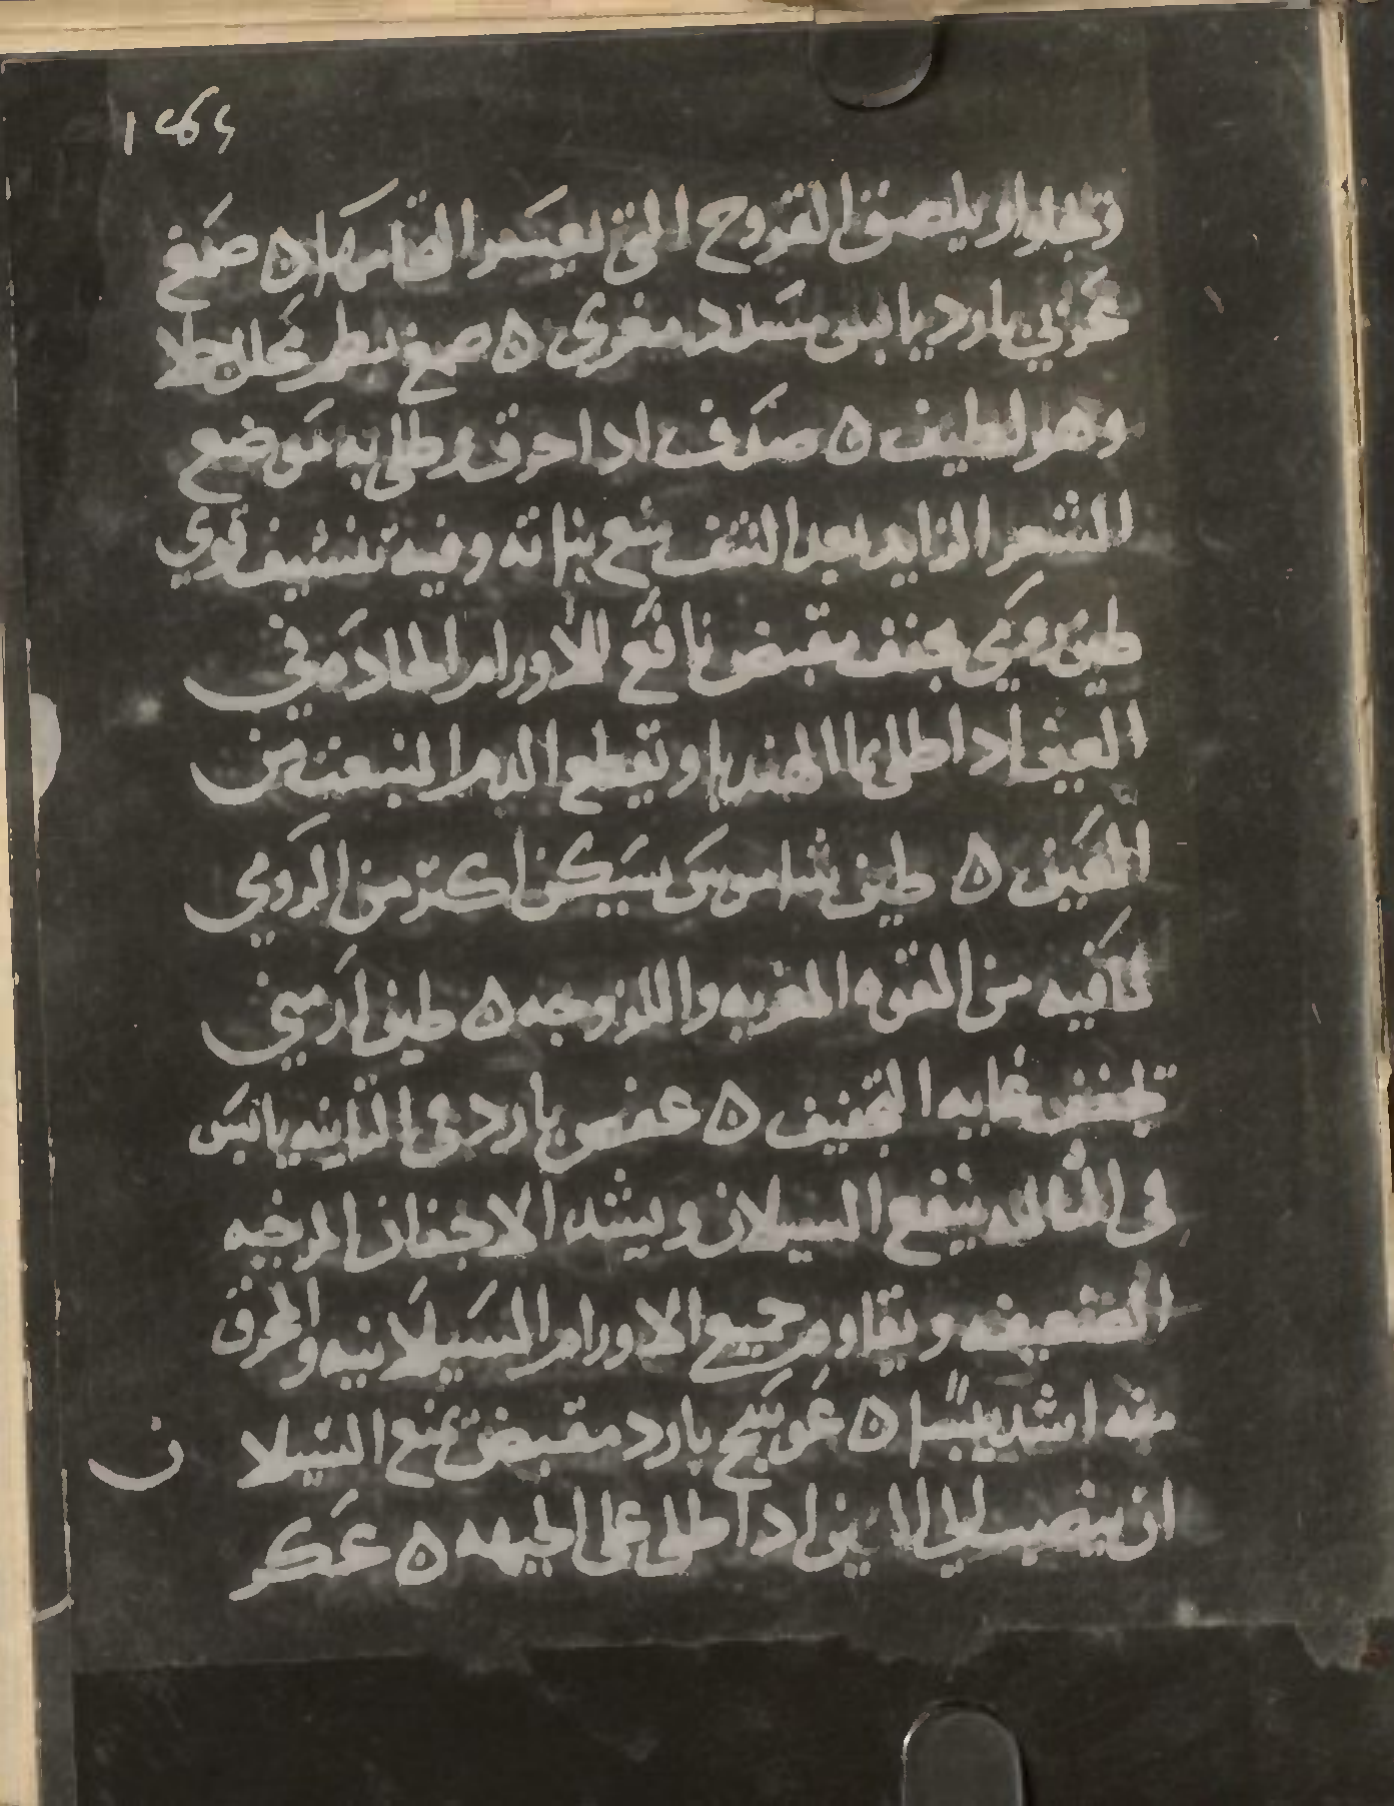 وتجلوا ويلصق القروح التي يعسر التحامها ه صمغ
عربي بارد يابس مسدد مغري ه صمغ
وهو لطيف ه صدف اذا احرق وطلي به موضع
الشعر الزايد بعد النتف منع نباته وفيه تنشيف قوي
طين رومي يجفف مقبض نافع للاورام الحاده في
العين اذا طلي بما الهندبا ويقطع الدم المنبعث من
العين ه طين شاموس يسكن اكثر من الرومي
لما فيه من القوه المغريه واللزوجه ه طين ارميني
يجفف غايه التجفيف ه عفص بارد في الثانيه يابس
في الثالثه ينفع السيلان ويشد الاجفان المرخيه
الضعيفه ويقاوم جميع الاورام السيلانيه والمحرق
منه اشد يبسًا ه عوسج بارد مقبض يمنع السيلا ن
ان ينصب الي العين اذا طلي علي الجبهه ه عكر